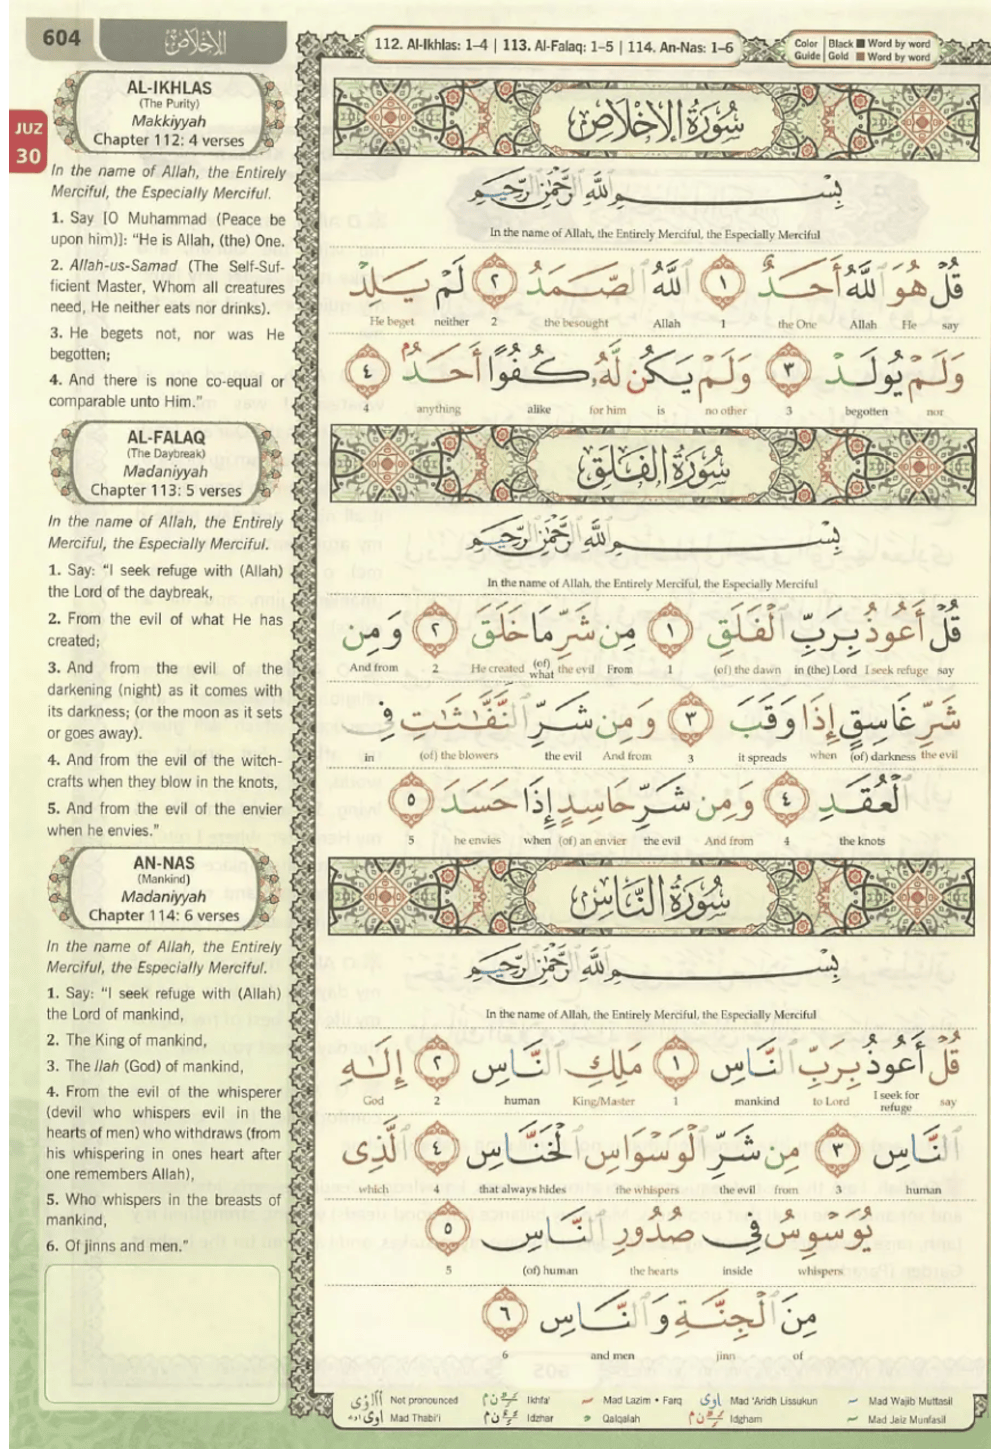 604
الإخلاص
112. Al-Ikhlas: 1–4 | 113. Al-Falaq: 1–5 | 114. An-Nas: 1–6
Color Guide | Black ■ Word by word
Gold ■ Word by word
JUZ
30
AL-IKHLAS
(The Purity)
Makkiyyah
Chapter 112: 4 verses
In the name of Allah, the Entirely
Merciful, the Especially Merciful.
1. Say [O Muhammad (Peace be
upon him)]: “He is Allah, (the) One.
2. Allah-us-Samad (The Self-Suf-
ficient Master, Whom all creatures
need, He neither eats nor drinks).
3. He begets not, nor was He
begotten;
4. And there is none co-equal or
comparable unto Him.”
AL-FALAQ
(The Daybreak)
Madaniyyah
Chapter 113: 5 verses
In the name of Allah, the Entirely
Merciful, the Especially Merciful.
1. Say: “I seek refuge with (Allah)
the Lord of the daybreak,
2. From the evil of what He has
created;
3. And from the evil of the
darkening (night) as it comes with
its darkness; (or the moon as it sets
or goes away).
4. And from the evil of the witch-
crafts when they blow in the knots,
5. And from the evil of the envier
when he envies.”
AN-NAS
(Mankind)
Madaniyyah
Chapter 114: 6 verses
In the name of Allah, the Entirely
Merciful, the Especially Merciful.
1. Say: “I seek refuge with (Allah)
the Lord of mankind,
2. The King of mankind,
3. The Ilah (God) of mankind,
4. From the evil of the whisperer
(devil who whispers evil in the
hearts of men) who withdraws (from
his whispering in ones heart after
one remembers Allah),
5. Who whispers in the breasts of
mankind,
6. Of jinns and men.”
سُورَةُ الإِخْلَاصِ
بِسْمِ اللَّهِ الرَّحْمَٰنِ الرَّحِيمِ
In the name of Allah, the Entirely Merciful, the Especially Merciful
قُلْ هُوَ ٱللَّهُ أَحَدٌ ١ ٱللَّهُ ٱلصَّمَدُ ٢ لَمْ يَلِدْ
He beget neither 2 the besought Allah 1 the One Allah He say
وَلَمْ يُولَدْ ٣ وَلَمْ يَكُن لَّهُۥ كُفُوًا أَحَدٌ ٤
4 anything alike for him is no other 3 begotten nor
سُورَةُ الفَلَقِ
بِسْمِ اللَّهِ الرَّحْمَٰنِ الرَّحِيمِ
In the name of Allah, the Entirely Merciful, the Especially Merciful
قُلْ أَعُوذُ بِرَبِّ ٱلْفَلَقِ ١ مِن شَرِّ مَا خَلَقَ ٢ وَمِن
And from 2 He created (of) what the evil From 1 (of) the dawn in (the) Lord I seek refuge say
شَرِّ غَاسِقٍ إِذَا وَقَبَ ٣ وَمِن شَرِّ ٱلنَّفَّٰثَٰتِ فِى
in (of) the blowers the evil And from 3 it spreads when (of) darkness the evil
ٱلْعُقَدِ ٤ وَمِن شَرِّ حَاسِدٍ إِذَا حَسَدَ ٥
5 he envies when (of) an envier the evil And from 4 the knots
سُورَةُ النَّاسِ
بِسْمِ اللَّهِ الرَّحْمَٰنِ الرَّحِيمِ
In the name of Allah, the Entirely Merciful, the Especially Merciful
قُلْ أَعُوذُ بِرَبِّ ٱلنَّاسِ ١ مَلِكِ ٱلنَّاسِ ٢ إِلَٰهِ
God 2 human King/Master 1 mankind to Lord I seek for refuge say
ٱلنَّاسِ ٣ مِن شَرِّ ٱلْوَسْوَاسِ ٱلْخَنَّاسِ ٤ ٱلَّذِى
which 4 that always hides the whispers the evil from 3 human
يُوَسْوِسُ فِى صُدُورِ ٱلنَّاسِ ٥
5 (of) human the hearts inside whispers
مِنَ ٱلْجِنَّةِ وَٱلنَّاسِ ٦
6 and men jinn of
Not pronounced Ikhfa' Mad Lazim • Farq Mad 'Aridh Lissukun Mad Wajib Muttasil
Mad Thabi'i Idzhar Qalqalah Idgham Mad Jaiz Munfasil